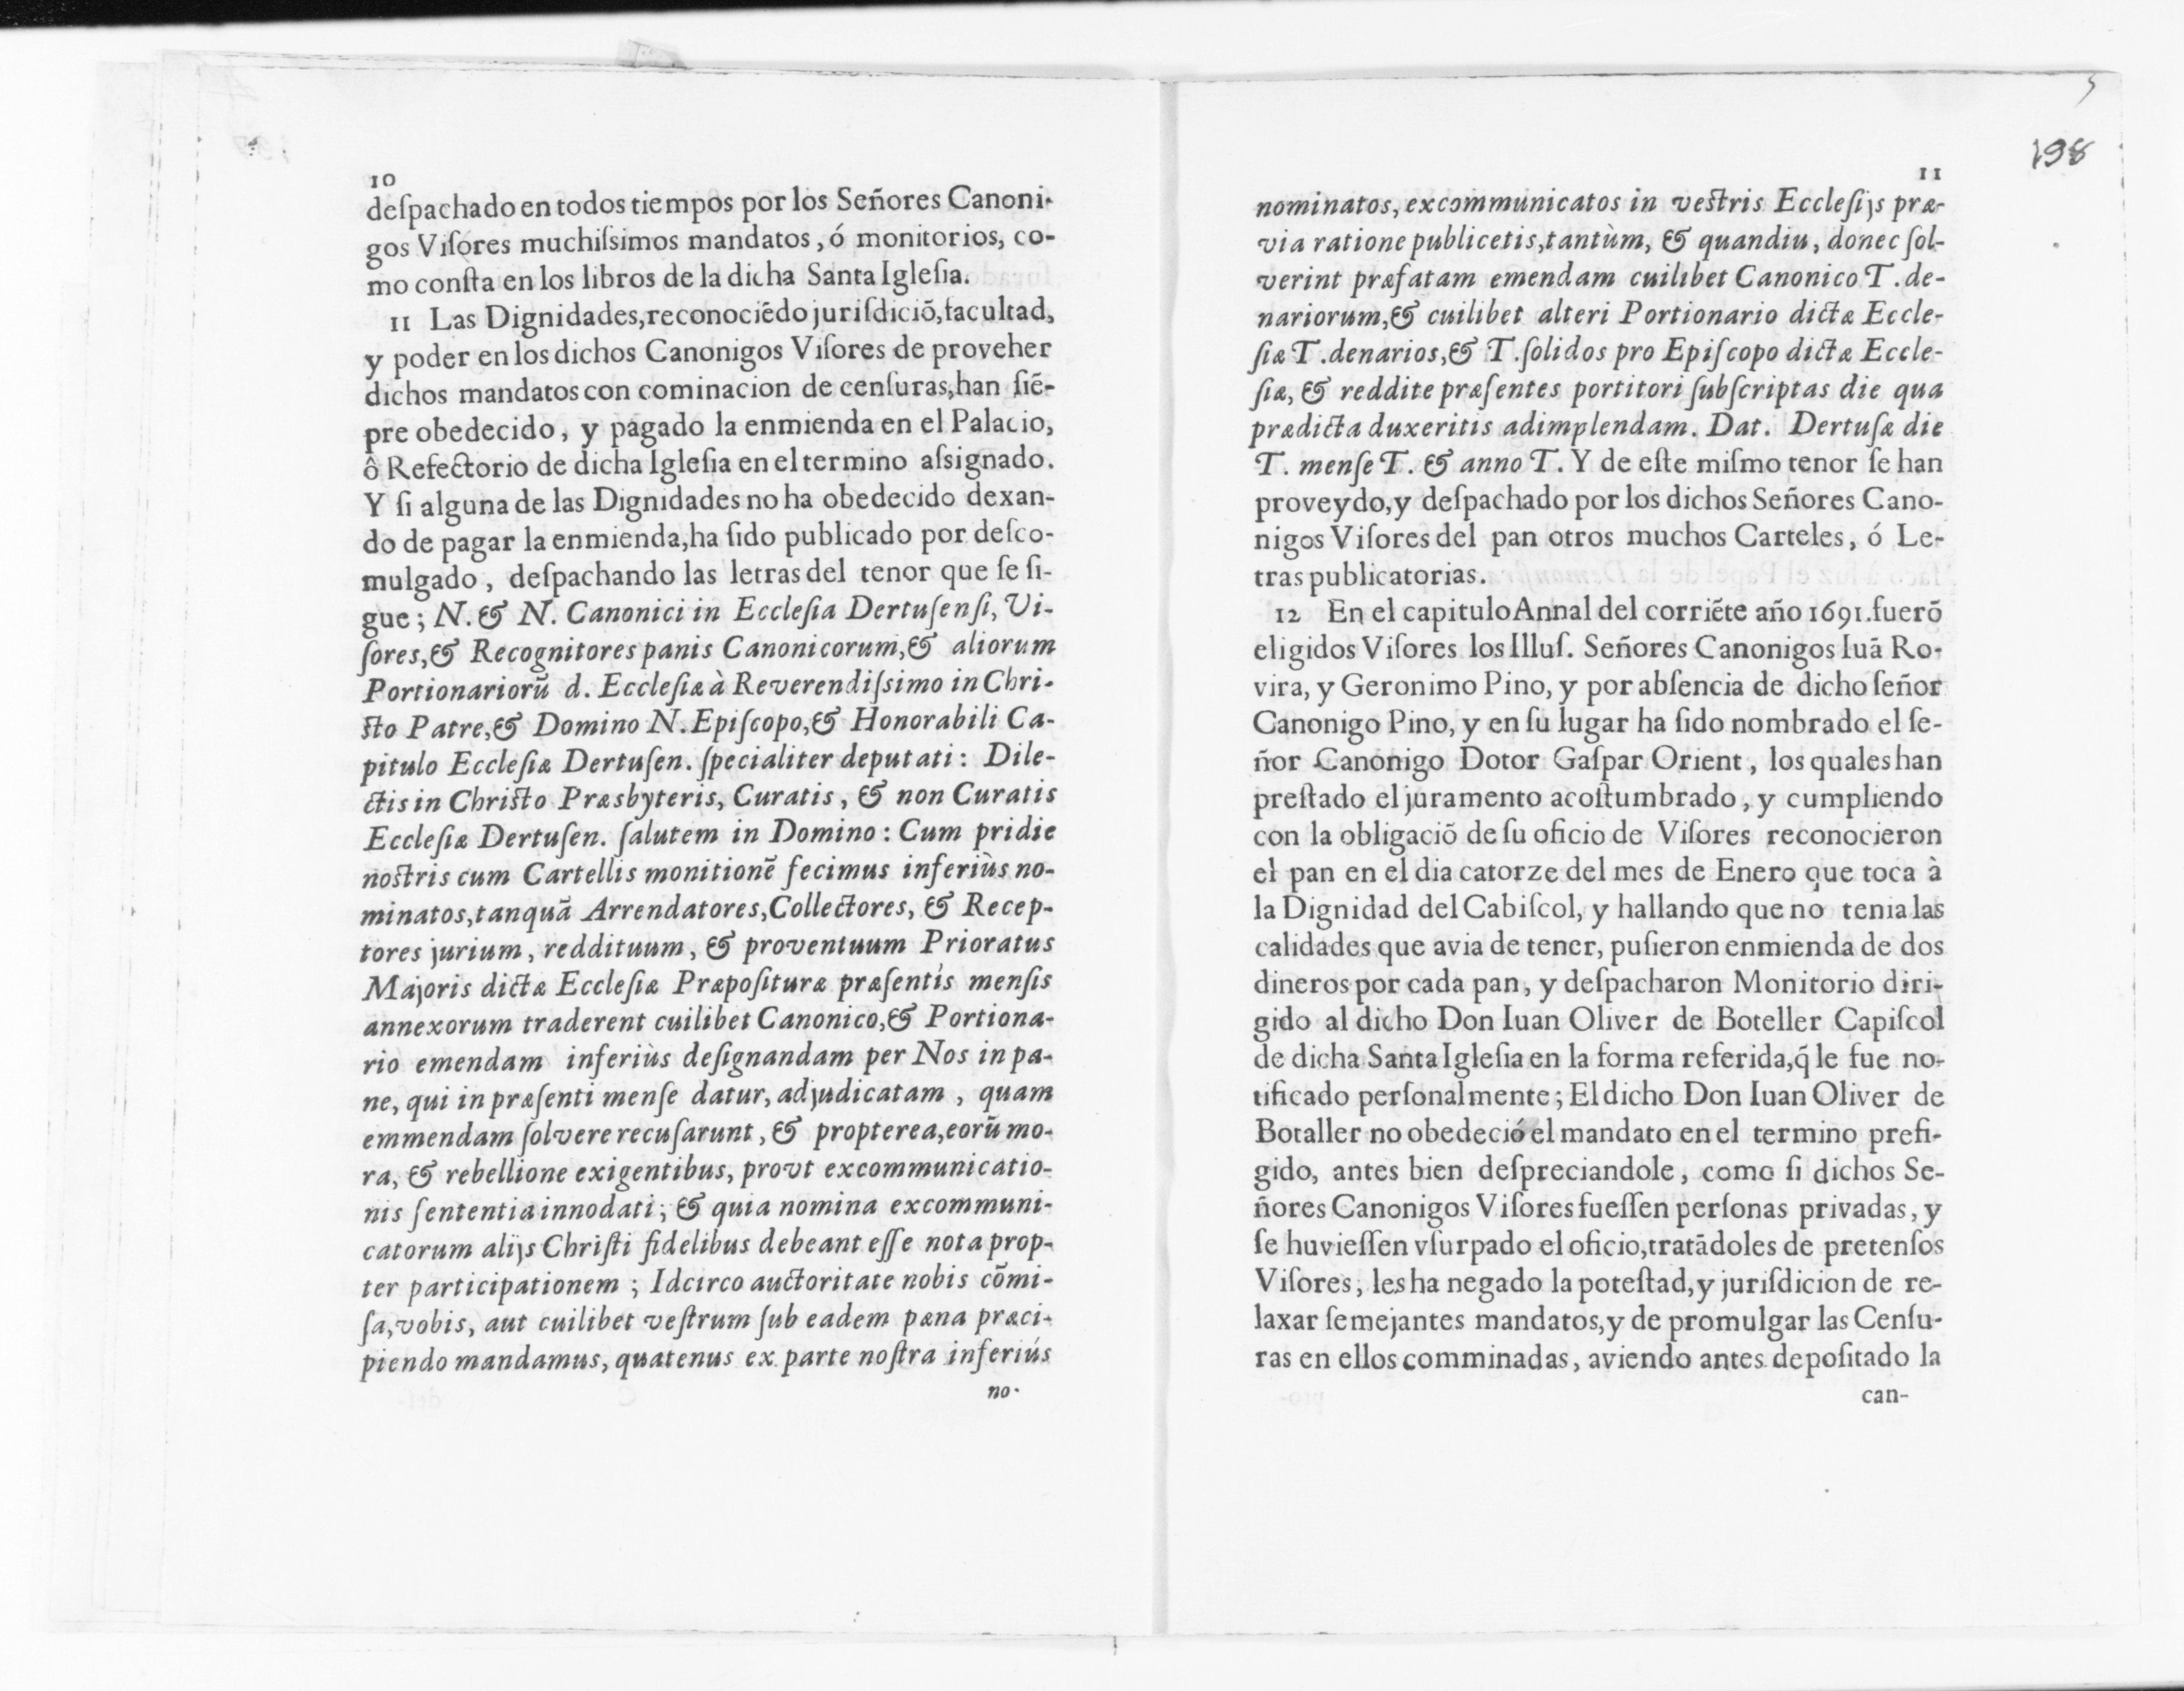 10
deſpachado en todos tiempos por los Señores Canoni-
gos Viſores muchiſsimos mandatos, ó monitorios, co-
mo conſta en los libros de la dicha Santa Igleſia.
11 Las Dignidades, reconociẽdo juriſdiciõ, facultad,
y poder en los dichos Canonigos Viſores de proveher
dichos mandatos con cominacion de cenſuras, han ſiẽ-
pre obedecido, y pagado la enmienda en el Palacio,
ô Refectorio de dicha Igleſia en el termino aſsignado.
Y ſi alguna de las Dignidades no ha obedecido dexan-
do de pagar la enmienda, ha ſido publicado por deſco-
mulgado, deſpachando las letras del tenor que ſe ſi-
gue; N. & N. Canonici in Eccleſia Dertuſenſi, Vi-
ſores, & Recognitores panis Canonicorum, & aliorum
Portionariorũ d. Eccleſiæ à Reverendiſsimo in Chri-
ſto Patre, & Domino N. Epiſcopo, & Honorabili Ca-
pitulo Eccleſiæ Dertuſen. ſpecialiter deputati: Dile-
ctis in Chriſto Præsbyteris, Curatis, & non Curatis
Eccleſiæ Dertuſen. ſalutem in Domino: Cum pridie
noſtris cum Cartellis monitionẽ fecimus inferiùs no-
minatos, tanquã Arrendatores, Collectores, & Recep-
tores jurium, reddituum, & proventuum Prioratus
Majoris dictæ Eccleſiæ Præpoſituræ præſentis menſis
annexorum traderent cuilibet Canonico, & Portiona-
rio emendam inferiùs deſignandam per Nos in pa-
ne, qui in præſenti menſe datur, adjudicatam, quam
emmendam ſolvere recuſarunt, & propterea, eorũ mo-
ra, & rebellione exigentibus, provt excommunicatio-
nis ſententia innodati; & quia nomina excommuni-
catorum alijs Chriſti fidelibus debeant eſſe nota prop-
ter participationem; Idcirco auctoritate nobis cõmi-
ſa, vobis, aut cuilibet veſtrum ſub eadem pæna præci-
piendo mandamus, quatenus ex parte noſtra inferiús
no-
5
198
11
nominatos, excommunicatos in veſtris Eccleſijs præ-
via ratione publicetis, tantùm, & quandiu, donec ſol-
verint præfatam emendam cuilibet Canonico T. de-
nariorum, & cuilibet alteri Portionario dictæ Eccle-
ſiæ T. denarios, & T. ſolidos pro Epiſcopo dictæ Eccle-
ſiæ, & reddite præſentes portitori ſubſcriptas die qua
prædicta duxeritis adimplendam. Dat. Dertuſæ die
T. menſe T. & anno T. Y de eſte miſmo tenor ſe han
proveydo, y deſpachado por los dichos Señores Cano-
nigos Viſores del pan otros muchos Carteles, ó Le-
tras publicatorias.
12 En el capitulo Annal del corriẽte año 1691. fuerõ
eligidos Viſores los Illuſ. Señores Canonigos Iuã Ro-
vira, y Geronimo Pino, y por abſencia de dicho ſeñor
Canonigo Pino, y en ſu lugar ha ſido nombrado el ſe-
ñor Canonigo Dotor Gaſpar Orient, los quales han
preſtado el juramento acoſtumbrado, y cumpliendo
con la obligaciõ de ſu oficio de Viſores reconocieron
el pan en el dia catorze del mes de Enero que toca à
la Dignidad del Cabiſcol, y hallando que no tenia las
calidades que avia de tener, puſieron enmienda de dos
dineros por cada pan, y deſpacharon Monitorio diri-
gido al dicho Don Iuan Oliver de Boteller Capiſcol
de dicha Santa Igleſia en la forma referida, q̃ le fue no-
tificado perſonalmente; El dicho Don Iuan Oliver de
Botaller no obedeció el mandato en el termino prefi-
gido, antes bien deſpreciandole, como ſi dichos Se-
ñores Canonigos Viſores fueſſen perſonas privadas, y
ſe huvieſſen vſurpado el oficio, tratãdoles de pretenſos
Viſores, les ha negado la poteſtad, y juriſdicion de re-
laxar ſemejantes mandatos, y de promulgar las Cenſu-
ras en ellos comminadas, aviendo antes depoſitado la
can-